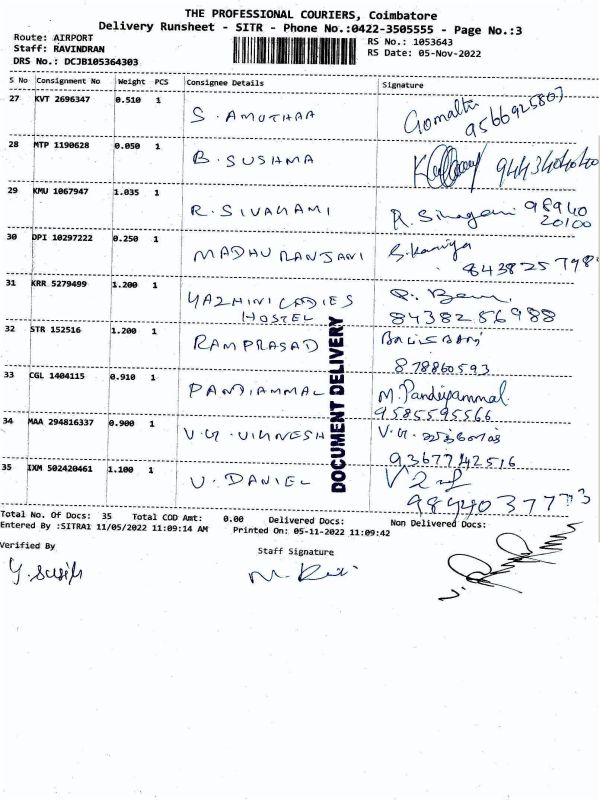 THE PROFESSIONAL COURIERS, Coimbatore
Delivery Runsheet - SITR - Phone No.:0422-3505555 - Page No.:3
Route: AIRPORT
RS No.: 1053643
Staff: RAVINDRAN
RS Date: 05-Nov-2022
DRS No.: DCJB105364303
S No Consignment No Weight PCS Consignee Details Signature
27 KVT 2696347 0.510 1 S. AMUTHAA Gomathi 9566925807
28 MTP 1190628 0.050 1 B. SUSHMA
29 KMU 1067947 1.035 1 R. SIVAKAMI R. Sivagami 98940
20100
30 DPI 10297222 0.250 1 MADHU RANJANI S. Kaniya
843825798
31 KRR 5279499 1.200 1 YAZHINI LADIES
HOSTEL 8438256988
32 STR 152516 1.200 1 RAMPRASAD
878860593
33 CGL 1404115 0.910 1 PANDIAMMAL M. Pandiyammal
9585595566
34 MAA 294816337 0.900 1 V.G. VIGNESH V.G.
9367742516
35 IXM 502420461 1.100 1 V. DANIEL
9894037773
DOCUMENT DELIVERY
Total No. Of Docs: 35 Total COD Amt: 0.00 Delivered Docs: Non Delivered Docs:
Entered By :SITRA1 11/05/2022 11:09:14 AM Printed On: 05-11-2022 11:09:42
Verified By
Staff Signature